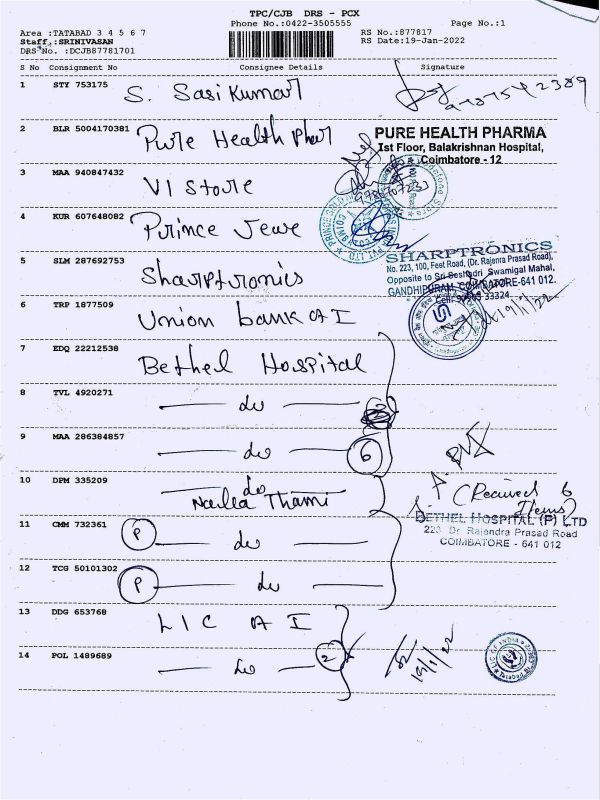 TPC/CJB DRS - PCX
Phone No.:0422-3505555
Page No.:1
Area :TATABAD 3 4 5 6 7
RS No.:877817
Staff :SRINIVASAN
RS Date:19-Jan-2022
DRS No. :DCJB87781701
S No Consignment No Consignee Details Signature
1 STY 753175 S. Sasi Kumar
2 BLR 5004170381 Pure Health Phar
PURE HEALTH PHARMA
Ist Floor, Balakrishnan Hospital,
Coimbatore - 12
3 MAA 940847432 VI Store
4 KUR 607648082 Prince Jewe
5 SLM 287692753 Sharptronics
SHARPTRONICS
No. 223, 100, Feet Road, (Dr. Rajenra Prasad Road),
Opposite to Sri Seshadri Swamigal Mahal,
GANDHIPURAM, COIMBATORE-641 012.
6 TRP 1877509 Union bank of I
7 EDQ 22212538 Bethel Hospital
8 TVL 4920271 do
9 MAA 286384857 do 6
10 DPM 335209 do
Nalla Thami
(Received 6
Items)
BETHEL HOSPITAL (P) LTD
223, Dr. Rajendra Prasad Road
COIMBATORE - 641 012
11 CMM 732361 P do
12 TCG 50101302 P do
13 DDG 653768 LIC of I
14 POL 1489689 do 2
19/1/22